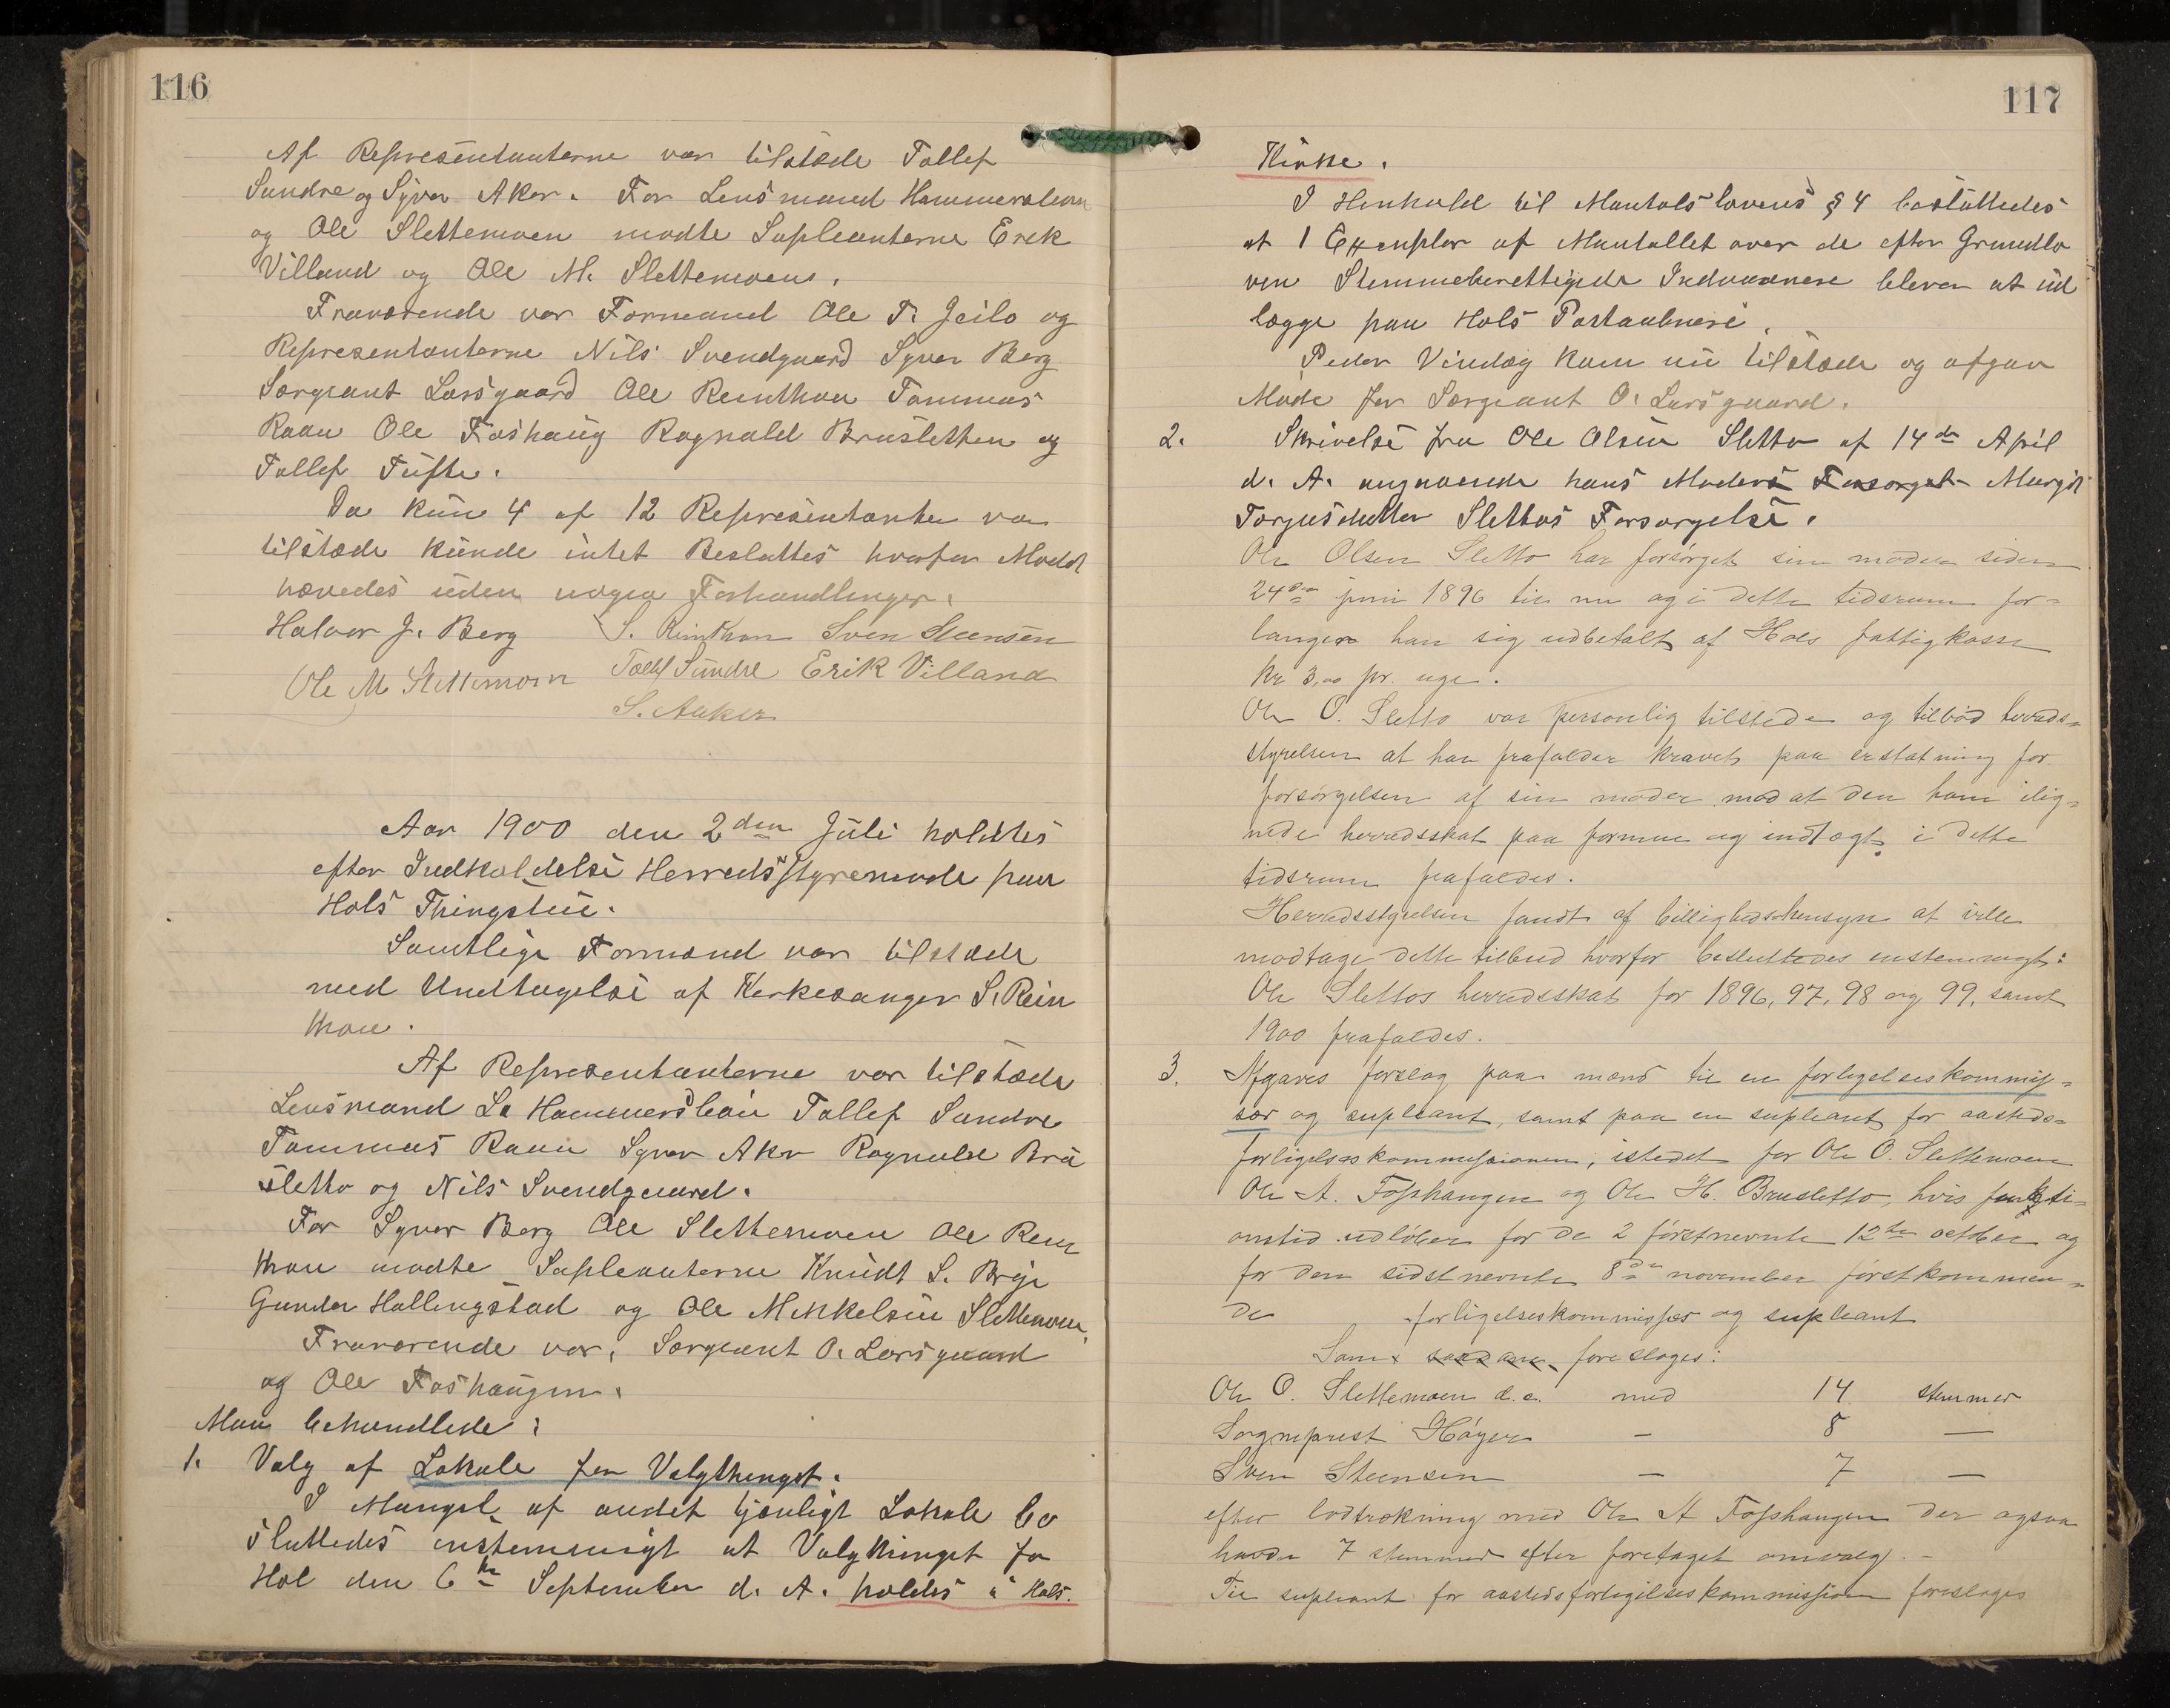 116
Af Repræsentanterne var tilstæde Tollef
Sundre og Syver Aker. For Lensmand Hammersbøen
og Ole Slettemoen mødte Supleanterne Erek
Villand og Ole M. Slettemoen.
Fraværende var Formand Ole T. Geilo og
Repræsentanterne Nils Svendgaard Syver Berg
Sergeant Larsgaard Ole Reinthon Tommas
Raau Ole Foshaug Ragnald Brusletten og
Tollef Tufte.
Da kun 4 af 12 Repræsentanter var
tilstæde kunde intet Besluttes hvorfor Mødet
hævedes uden nogen Forhandlinger.
Halvor J. Berg S. Reinthon Sven Steensen
Ole M Slettemoen Tollef Sundre Erik Villand
S. Aaker
Aar 1900 den 2den Juli holdtes
efter Indkaldelse Herredsstyremøde paa
Hols Thingstue.
Samtlige Formænd var tilstæde
med Undtagelse af Kerkesanger S. Rein
thon.
Af Repræsentanterne var tilstæde
Lensmand L. Hammersbøen Tollef Sundre
Tommas Raau Syver Aker Ragnald Bru
sletto og Nils Svendgaard.
For Syver Berg Ole Slettemoen Ole Rein
thon mødte Supleanterne Knudt S. Brye
Gunder Hallingstad og Ole Mikkelsen Slettemoen.
Fraværende var, Sergeant O. Larsgaard
og Ole Foshaugen.
Man behandlede:
1. Valg af Lokale for Valgthinget.
I Mangel af andet tjenligt Lokale be
sluttedes enstemmigt at Valgthinget for
Hol den 6te September d. A. holdes i Hols.
117
Kirke.
I Henhold til Mantalslovens § 4 besluttedes
at 1 Exemplar af Mantallet over de efter Grundlo
ven Stemmeberettigede Indvaanere bliver at ud
lægge paa Hols Postaabneri.
Peder Vindeg kom nu tilstæde og afgav
Møde for Sergeant O. Larsgaard.
2. Skrivelse fra Ole Olsen Sletto af 14de April
d. A. angaaende hans Moders Forsørget Margit
Torgusdatter Slettos Forsørgelse.
Ole Olsen Sletto har forsørget sin moder siden
24de juni 1896 til nu og i dette tidsrum for=
langer han sig udbetalt af Hols fattigkasse
Kr 3,00 pr. uge.
Ole O. Sletto var personlig tilstede og tilbød herreds=
styrelsen at han frafalder kravet paa erstatning for
forsørgelsen af sin moder mod at den ham ilig=
nede herredsskat paa formue og indtægt i dette
tidsrum frafaldes.
Herredsstyrelsen fandt af billighedshensyn at ville
modtage dette tilbud hvorfor besluttedes enstemmigt:
Ole Slettos herredsskat for 1896, 97, 98 og 99, samt
1900 frafaldes.
3. Afgaves forslag paa mænd til en forligelseskommis=
sær og supleant, samt paa en supleant for aasteds=
forligelseskommissionen, istedet for Ole O. Slettemoen
Ole A. Fosshaugen og Ole H. Brusletto, hvis funkti=
onstid udløber for de 2 førstnevnte 12te october og
for den sidstnevnte 8de november førstkommen=
de forligelseskommissær og supleant
Som saadane foreslages:
Ole O. Slettemoen d.e. med 14 stemmer
Sogneprest Høyer — 8 —
Sven Steensen — 7 —
efter lodtrækning med Ole A Fosshaugen der ogsaa
havde 7 stemmer efter foretaget omvalg. –
Til supleant for aastedsforligelseskommissionen foreslages